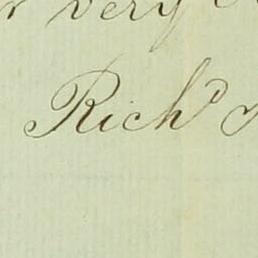 very
Richd